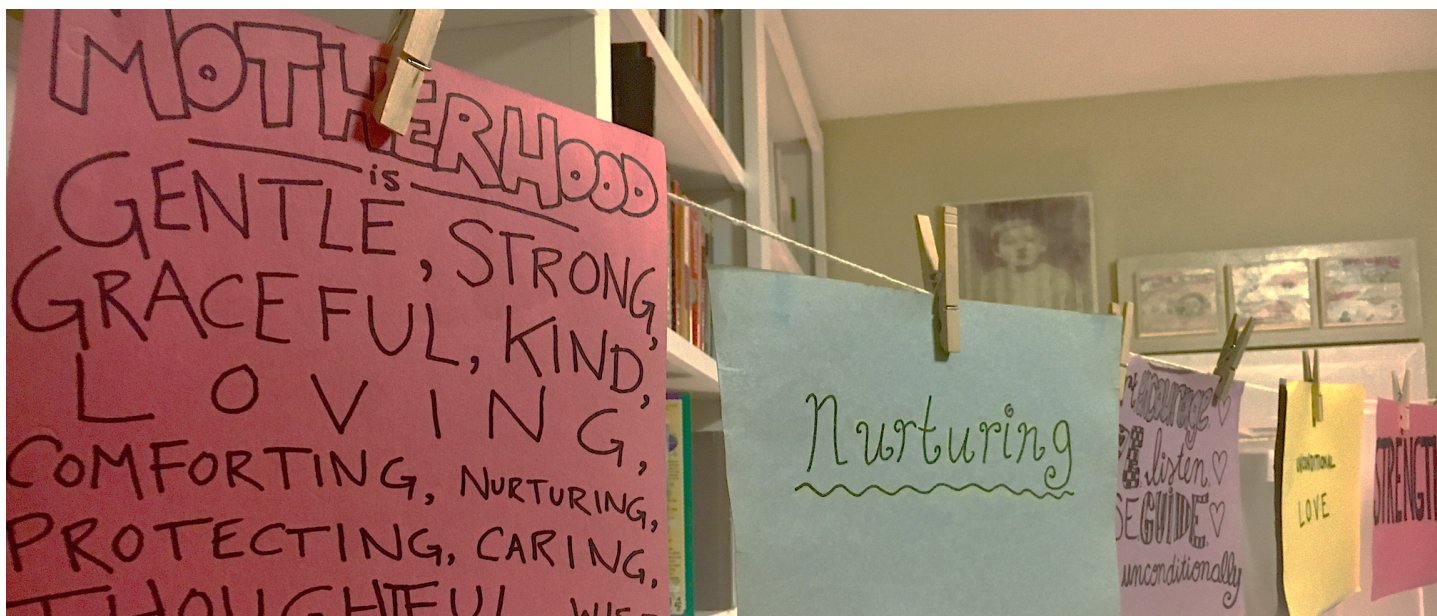 MOTHERHOOD
is
GENTLE, STRONG,
GRACEFUL, KIND,
LOVING,
COMFORTING, NURTURING,
PROTECTING, CARING,
THOUGHTFUL, WISE
Nurturing
encourage
listen
GUIDE
unconditionally
UNCONDITIONAL
LOVE
STRENGTH